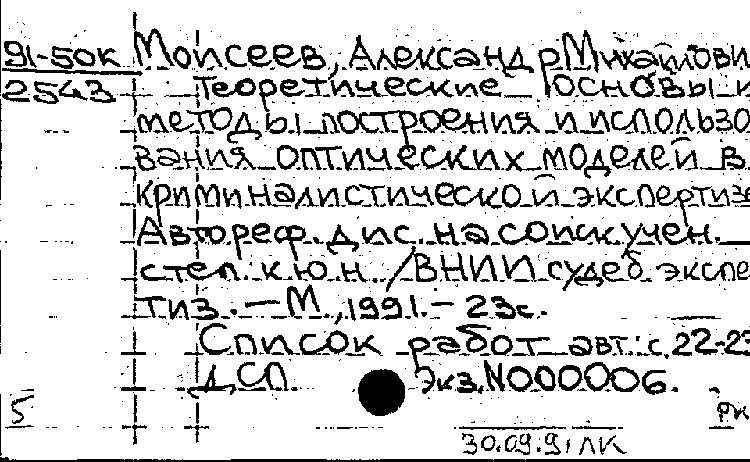 91-50к Моисеев, Александр Михайлови
2543 Теоретические основы и
методы построения и использо
вания оптических моделей в
криминалистической экспертизе
Автореф. дис. на соиск. учен.
степ. к.ю.н. / ВНИИ судеб. экспе
тиз. — М., 1991. — 23с.
Список работ авт.: с. 22-23
ДСП. Экз. N000006.
5 РК
30.09.91 ЛК